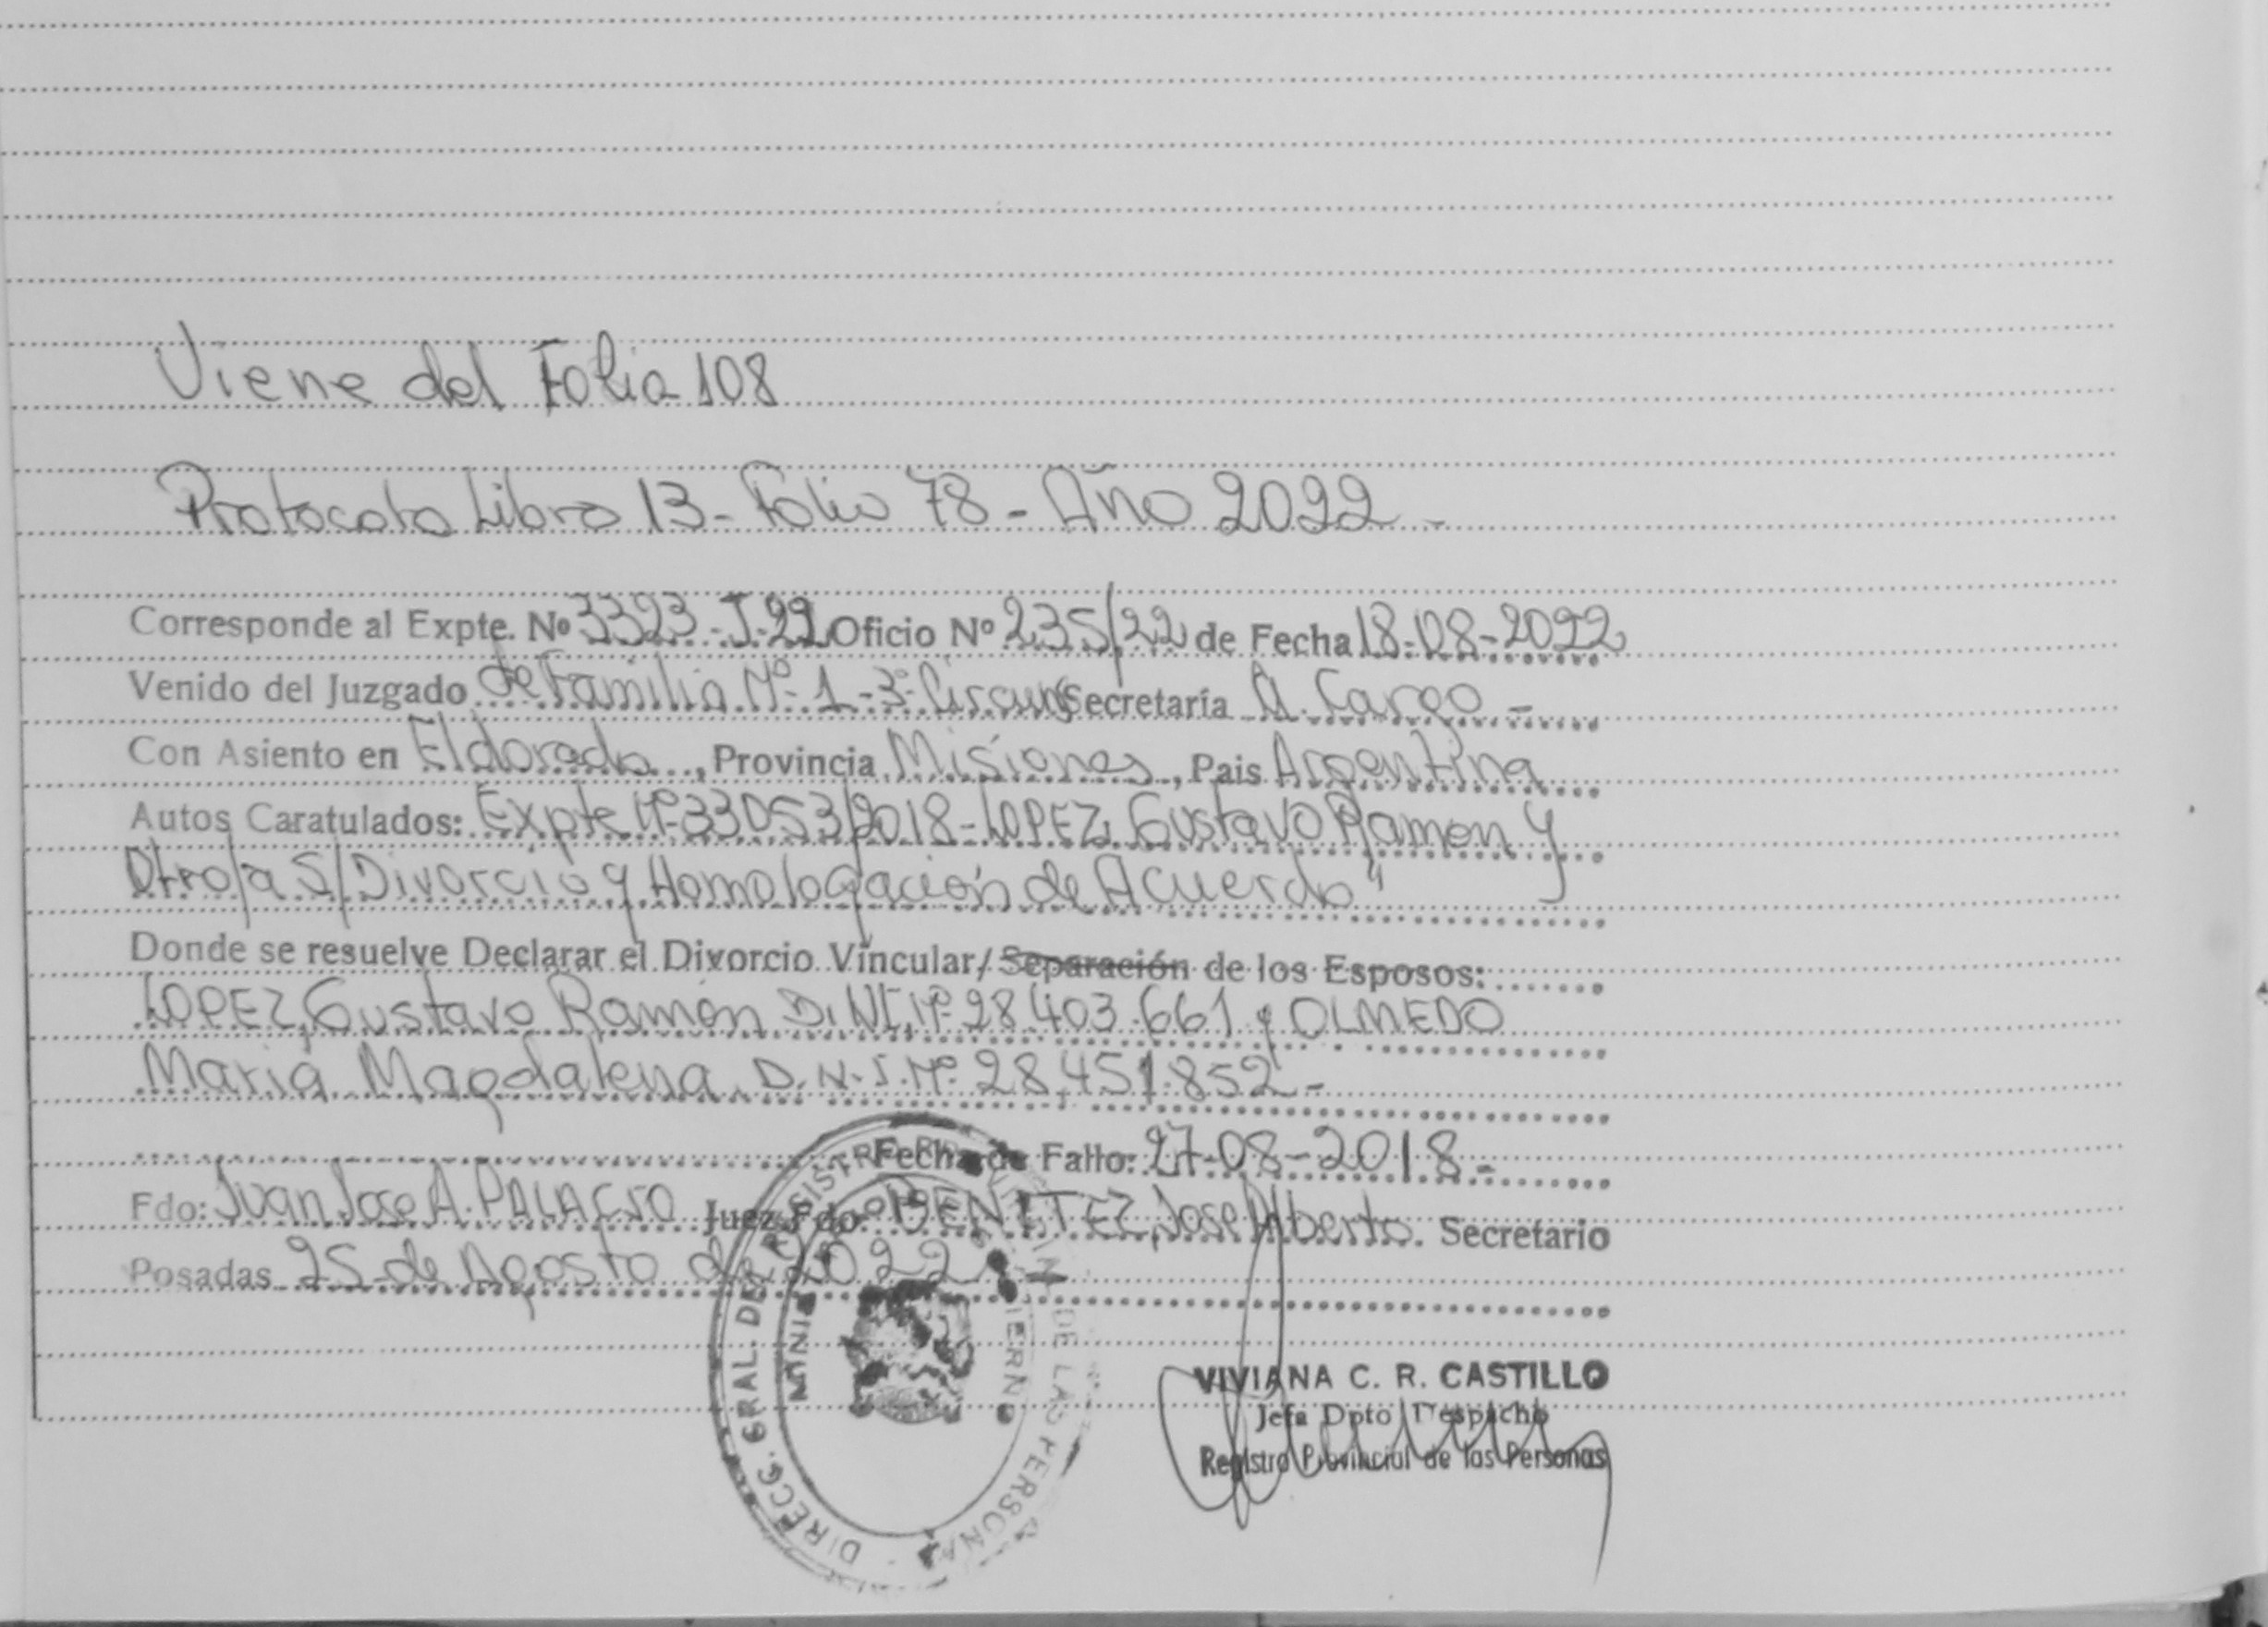 Viene del Folio 108
Protocolo Libro 13 - Folio 78 - Año 2022 -
Corresponde al Expte. Nº 3323-J-22 Oficio Nº 235/22 de Fecha 18-08-2022
Venido del Juzgado de Familia Nº 1 - 3º Circuns Secretaría A Cargo -
Con Asiento en Eldorado, Provincia Misiones, Pais Argentina
Autos Caratulados: Expte Nº 33053/2018 - LOPEZ, Gustavo Ramon y
Otro/a S/ Divorcio y Homologación de Acuerdo"
Donde se resuelve Declarar el Divorcio Vincular/ Separación de los Esposos:
LOPEZ, Gustavo Ramón D.N.I. Nº 28.403.661 y OLMEDO
Maria Magdalena D.N.I. Nº 28.451.852 -
Fecha de Fallo: 27-08-2018 -
Fdo: Juan Jose A. PALACIO Juez Fdo: BENITEZ, Jose Alberto. Secretario
Posadas 25 de Agosto de 2022 -
DIRECC. GRAL. DEL REGISTRO DE LAS PERSONAS
VIVIANA C. R. CASTILLO
Jefa Dpto Despacho
Registro Provincial de las Personas